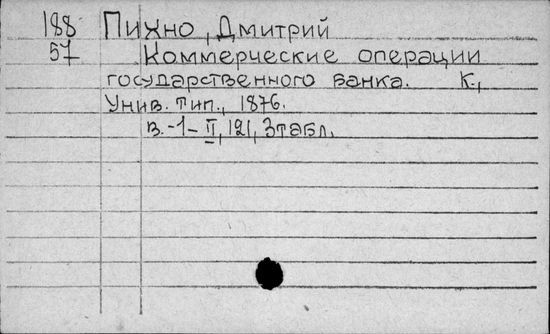 188 Пихно, Дмитрий
57 Коммерческие операции
государственного банка. К.,
Унив. тип., 1876.
В.-1-II, 121, 3табл.